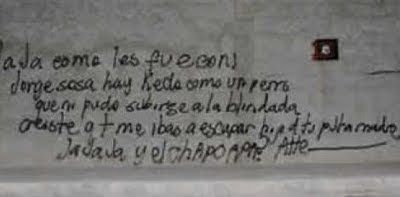 JaJa como les fue con
Jorge sosa hay Kedo como un perro
que ni pudo subirse a la blindada
creiste q t me ibas a escapar h p d tu puta madre
JaJaJa y el CHAPO Atte